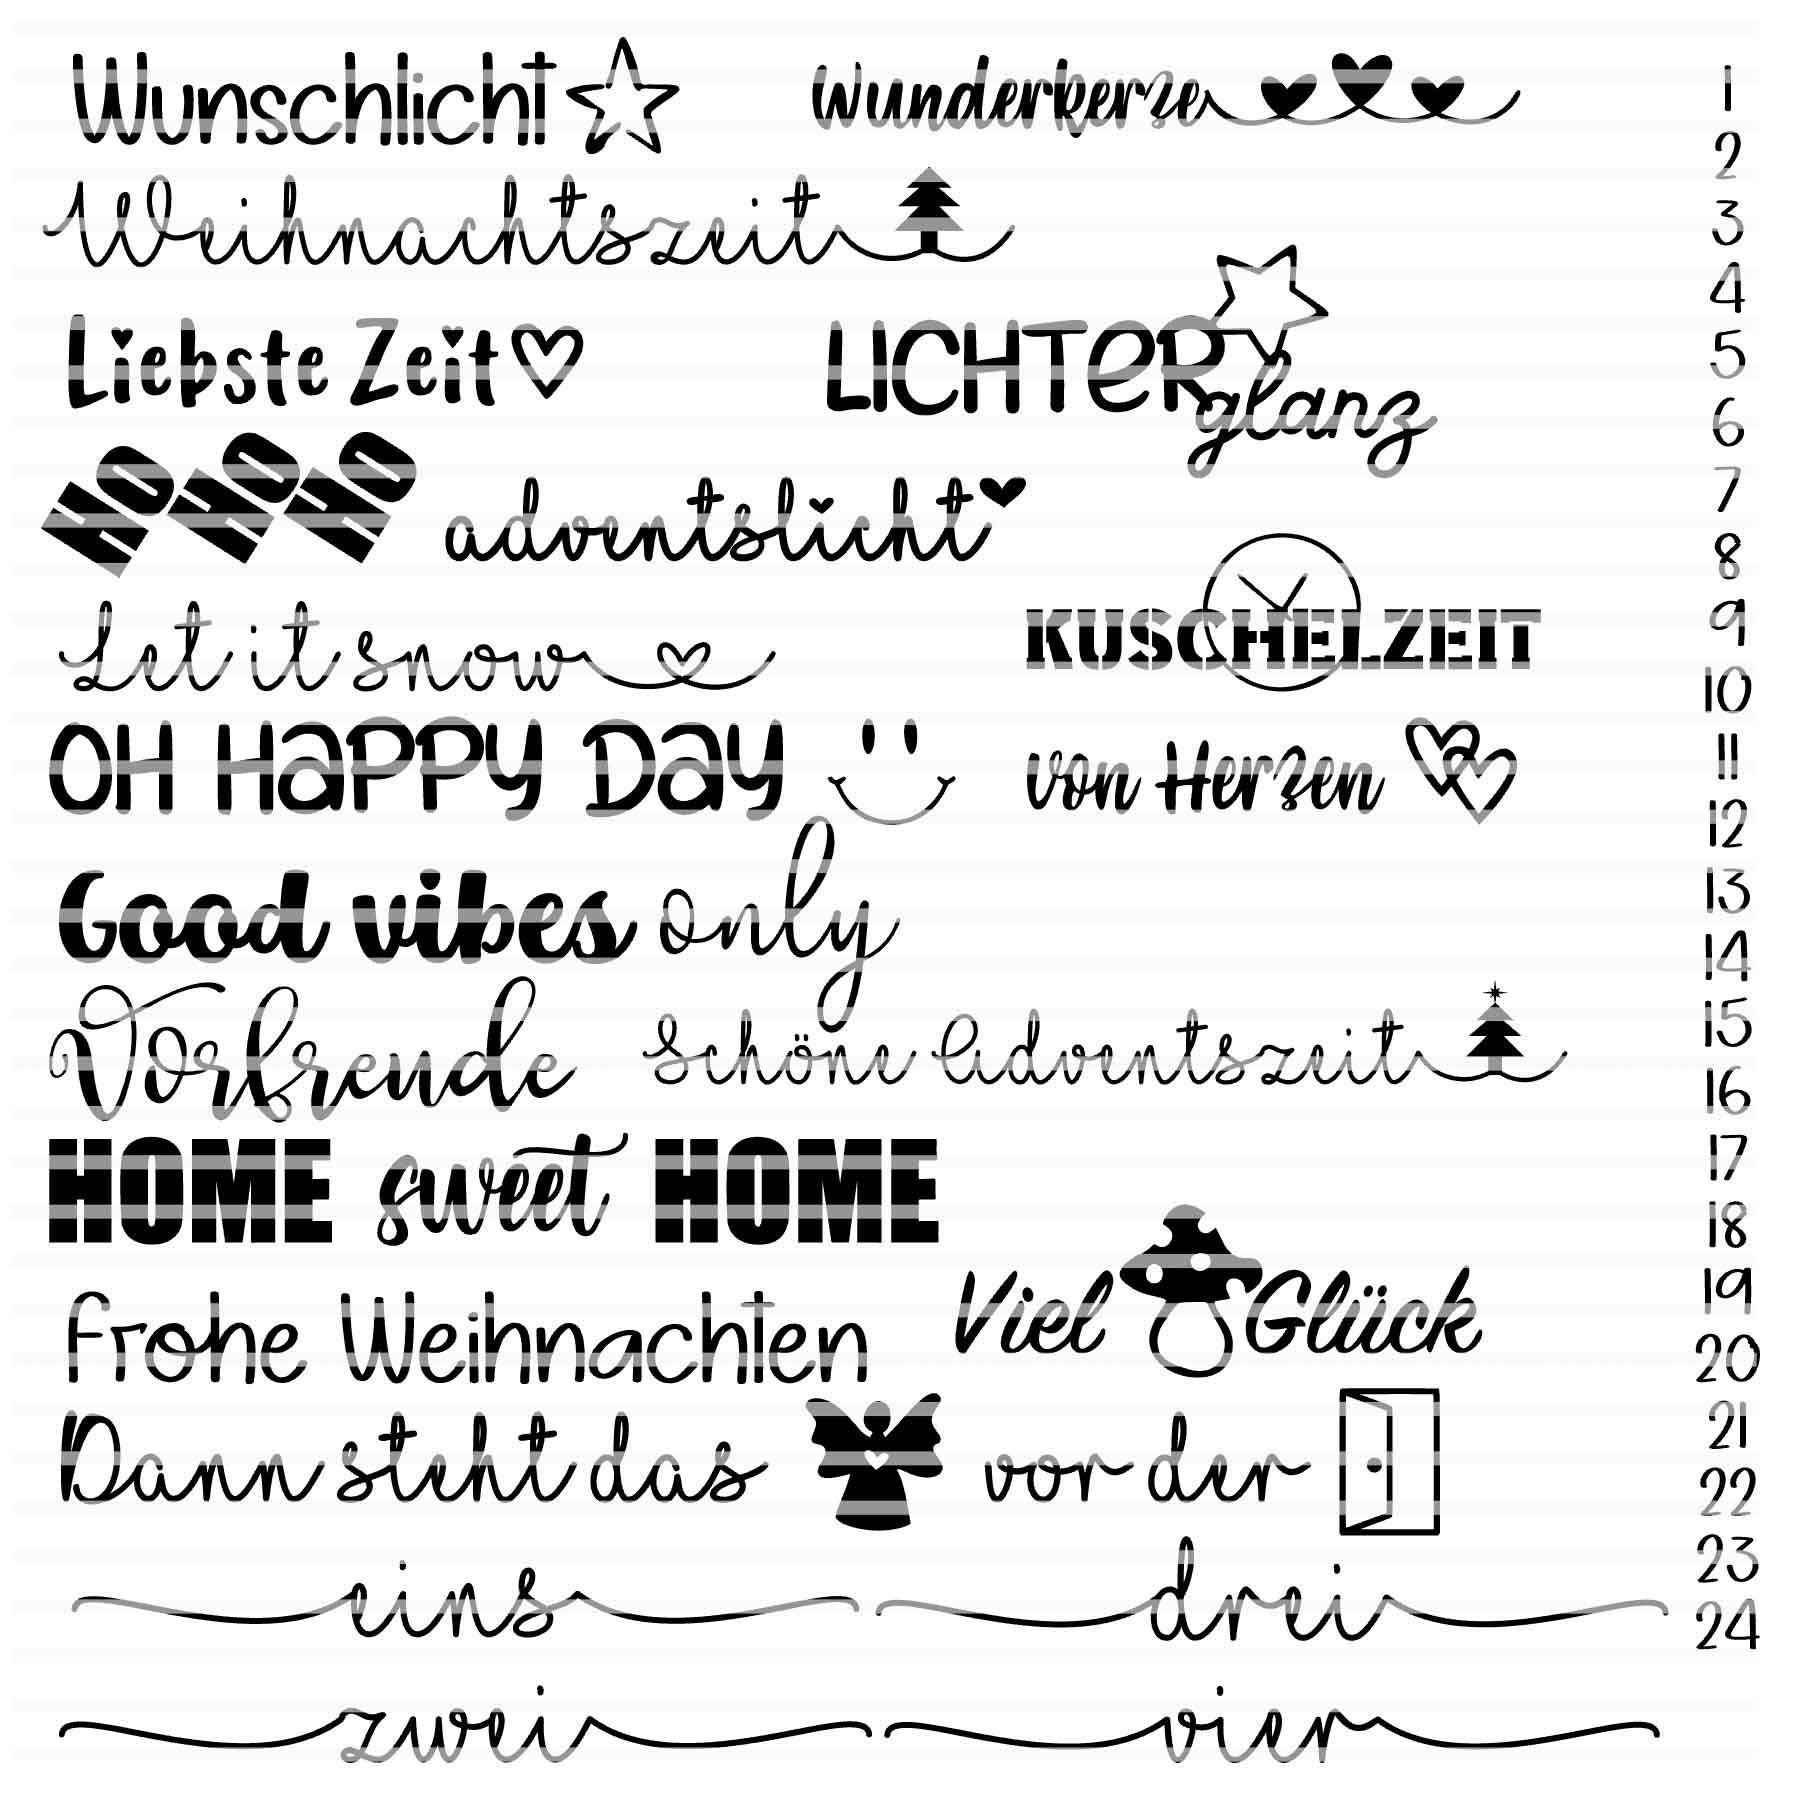 Wunschlicht
Wunderkerze
Weihnachtszeit
Liebste Zeit
LICHTER
glanz
HO HO HO
adventslicht
Let it snow
KUSCHELZEIT
OH HAPPY DAY
von Herzen
Good vibes only
Vorfreude
Schöne Adventszeit
HOME sweet HOME
Frohe Weihnachten
Viel Glück
Dann steht das vor der
eins
drei
zwei
vier
1
2
3
4
5
6
7
8
9
10
11
12
13
14
15
16
17
18
19
20
21
22
23
24